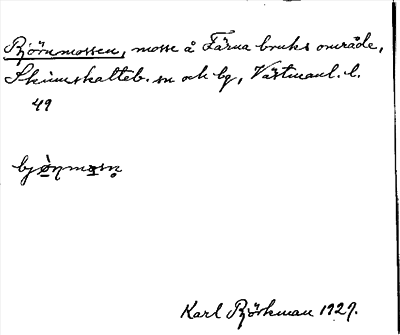 Björnmossen, mosse å Färna bruks område,
Skinnskatteb. sn och bg, Västmanl. l.
49
bjö̀ṇmɔsn̥
Karl Björkman 1929.